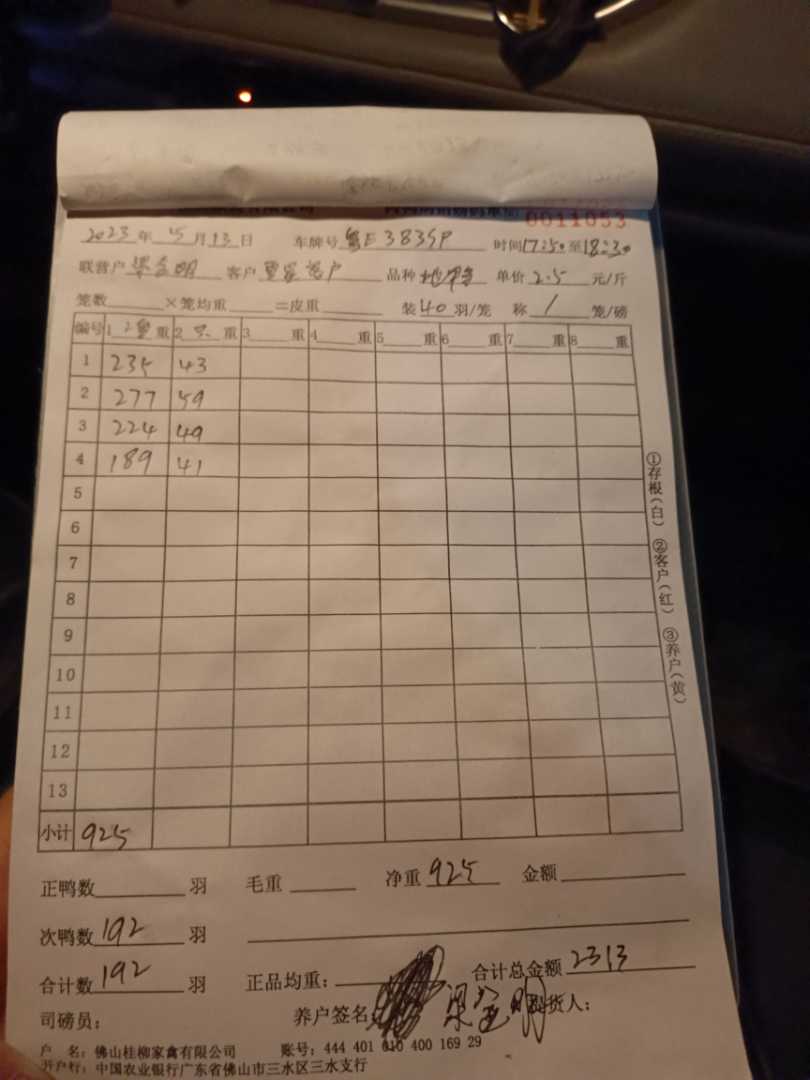 0011053
2023年 5月13日 车牌号粤E 3835P 时间17:50至18:30
联营户梁金明 客户 品种 单价2.5元/斤
笼数 ×笼均重 =皮重 装40羽/笼 称1笼/磅
编号 1 重 2 只 重 3 重 4 重 5 重 6 重 7 重 8 重
1 235 43
2 277 59
3 224 49
4 189 41
5
6
7
8
9
10
11
12
13
小计 925
①存根(白) ②客户(红) ③养户(黄)
正鸭数 羽 毛重 净重 925 金额
次鸭数 192 羽
合计数 192 羽 正品均重: 合计总金额 2313
司磅员: 养户签名 梁金明 提货人:
户 名: 佛山桂柳家禽有限公司 账号: 444 401 010 400 169 29
开户行: 中国农业银行广东省佛山市三水区三水支行